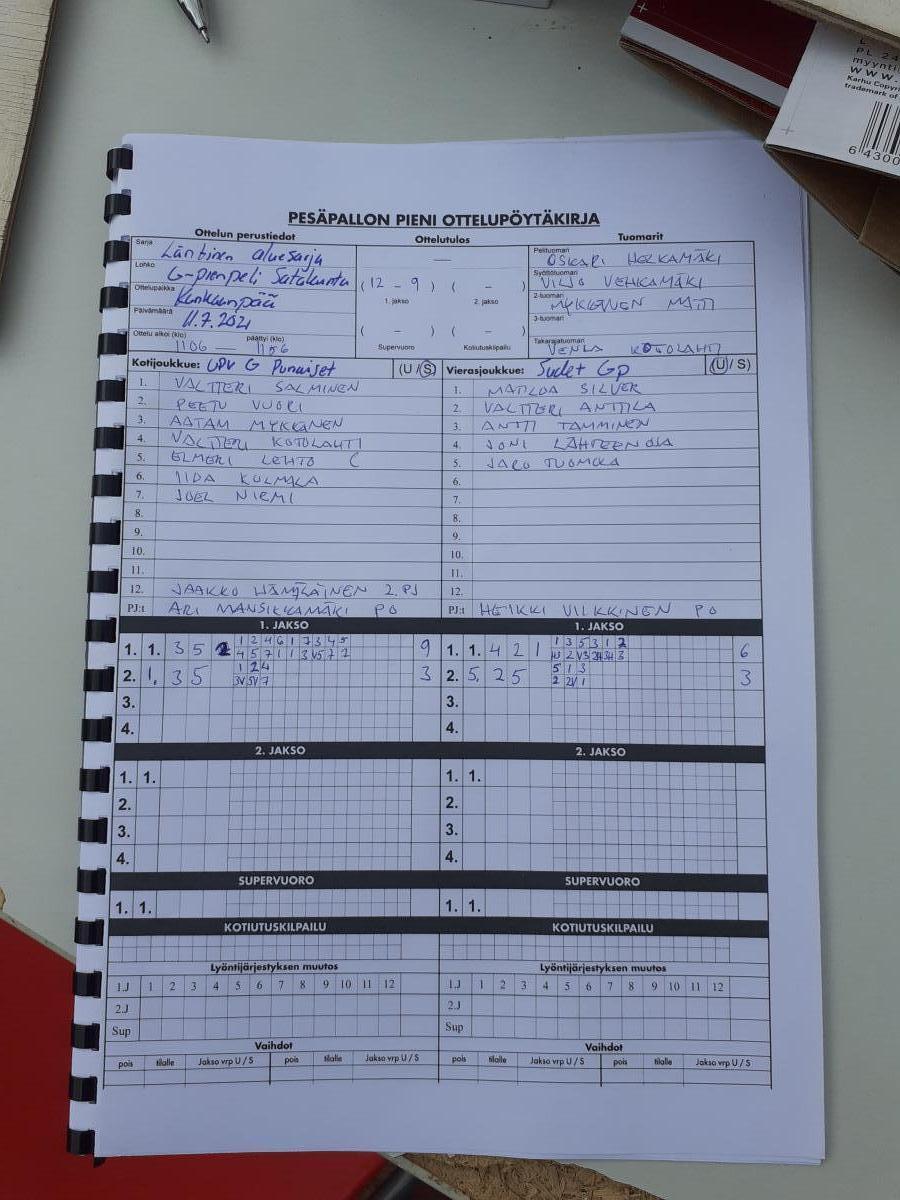 L
P.L. 24
myynti
WWW.
Karhu Copyr
trademark of
6 4300
PESÄPALLON PIENI OTTELUPÖYTÄKIRJA
Ottelun perustiedot
Ottelutulos
Tuomarit
Sarja Läntinen aluesarja
Lohko G-pienpeli Satakunta
Ottelupaikka Kankaanpää
Päivämäärä 11.7.2021
Ottelu alkoi (klo) 1106 — päättyi (klo) 1156
—
( 12 - 9 ) ( - )
1. jakso 2. jakso
( - ) ( - )
Supervuoro Kotiutuskilpailu
Pelituomari OSKARI HELKAMÄKI
Syöttötuomari VILJO VEHKAMÄKI
2-tuomari MYKKÄNEN MATTI
3-tuomari
Takarajatuomari VENLA KOTOLAHTI
Kotijoukkue: UPV G Punaiset (U / S)
1. VALTTERI SALMINEN
2. PEETU VUORI
3. AATAM MYKKÄNEN
4. VALTTERI KOTOLAHTI
5. ELMERI LEHTO C
6. IIDA KULMALA
7. JOEL NIEMI
8.
9.
10.
11.
12. JAAKKO HÄMÄLÄINEN 2.PJ
PJ:t ARI MANSIKKAMÄKI PO
Vierasjoukkue: Sudet Gp (U / S)
1. MATILDA SILVER
2. VALTTERI ANTTILA
3. ANTTI TAMMINEN
4. JONI LÄHTEENOJA
5. JARO TUOMOLA
6.
7.
8.
9.
10.
11.
12.
PJ:t HEIKKI VILKKINEN PO
1. JAKSO
1. 1. 3 5 2 1 2 4 6 1 7 3 4 5
4 5 7 1 1 3V 5 7 2
9
2. 1. 3 5 1 2 4
3V 5V 7
3
3.
4.
1. JAKSO
1. 1. 4 2 1 1 3 5 3 1 2
6
2. 5. 2 5 5 1 3
2 2V 1
3
3.
4.
2. JAKSO
1. 1.
2.
3.
4.
2. JAKSO
1. 1.
2.
3.
4.
SUPERVUORO
1. 1.
SUPERVUORO
1. 1.
KOTIUTUSKILPAILU
KOTIUTUSKILPAILU
Lyöntijärjestyksen muutos
1.J 1 2 3 4 5 6 7 8 9 10 11 12
2.J
Sup
Lyöntijärjestyksen muutos
1.J 1 2 3 4 5 6 7 8 9 10 11 12
2.J
Sup
Vaihdot
pois tilalle Jakso vrp U / S pois tilalle Jakso vrp U / S
Vaihdot
pois tilalle Jakso vrp U / S pois tilalle Jakso vrp U / S